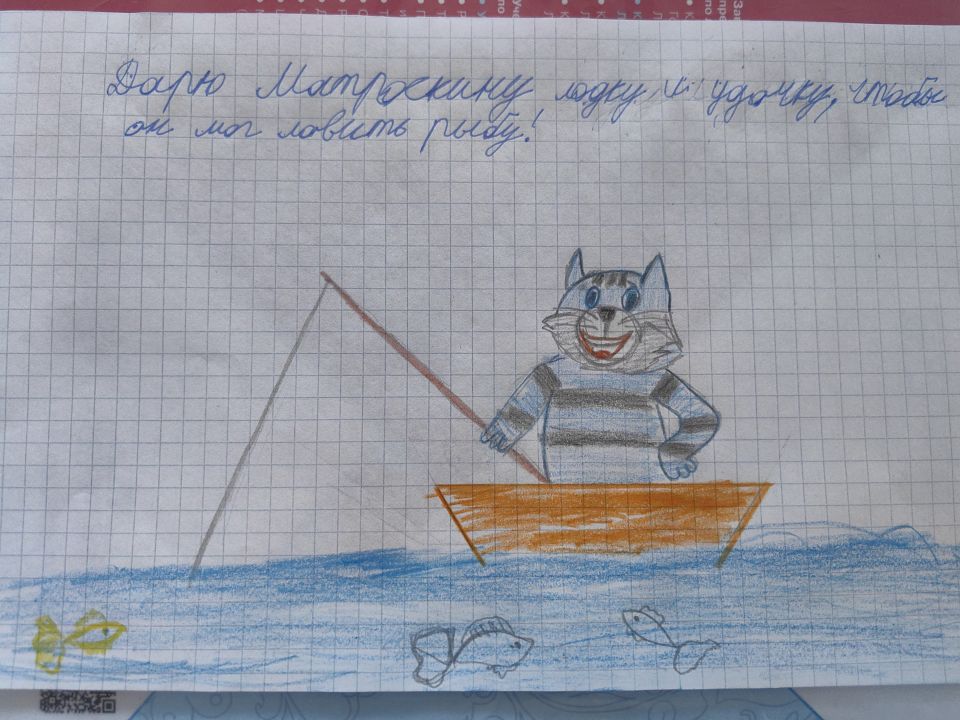 Дарю Матроскину лодку и удочку, чтобы
он мог ловить рыбу!